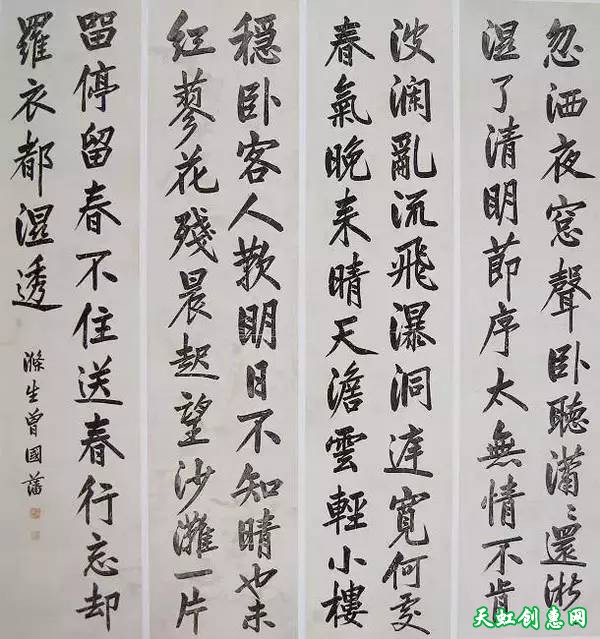 忽洒夜窓聲卧聽瀟〻還淅
湿了清明節序太無情不肯
波瀾亂流飛瀑洞庭寬何處
春氣晚来晴天澹雲輕小樓
穩卧客人歎明日不知晴也未
红蓼花殘晨起望沙灘一片
留停留春不住送春行忘却
羅衣都湿透
滌生曾國藩
天虹创惠网